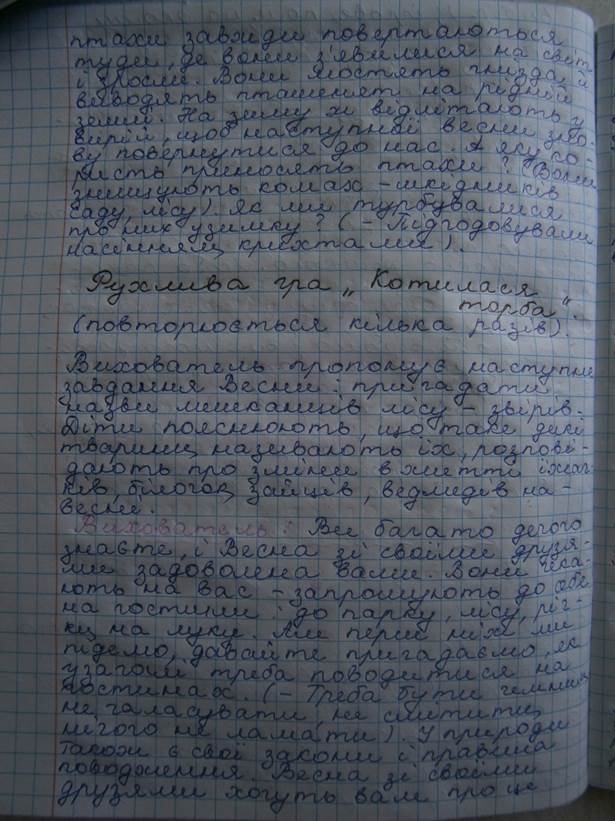 птахи завжди повертаються
туди, де вони з'явилися на світ
і зросли. Вони мостять гнізда, й
виводять пташенят на рідній
землі. На зиму ж відлітають у
вирій, щоб наступної весни зно-
ву повернутися до нас. А яку ко-
ристь приносять птахи? (Вони
знищують комах – шкідників
саду, лісу). Як ми турбувалися
про них узимку? (– Підгодовували
насінням, крихтами).
Рухлива гра „Котилася
торба".
(повторюється кілька разів).
Вихователь пропонує наступне
завдання Весни: пригадати
назви мешканців лісу – звірів.
Діти пояснюють, що таке дикі
тварини, називають їх, розпові-
дають про зміни в житті їжач-
ків, білочок, зайців, ведмедів на-
весні.
Вихователь: Ви багато дечого
знаєте, і Весна зі своїми друзя-
ми задоволена вами. Вони чека-
ють на вас – запрошують до себе
на гостини: до парку, лісу, річ-
ки, на луки. Але перш ніж ми
підемо, давайте пригадаємо, як
узагалі треба поводитися на
гостинах. (– Треба бути чемними,
не галасувати, не смітити,
нічого не ламати). У природи
також є свої закони і правила
поводження. Весна зі своїми
друзями хочуть вам про це